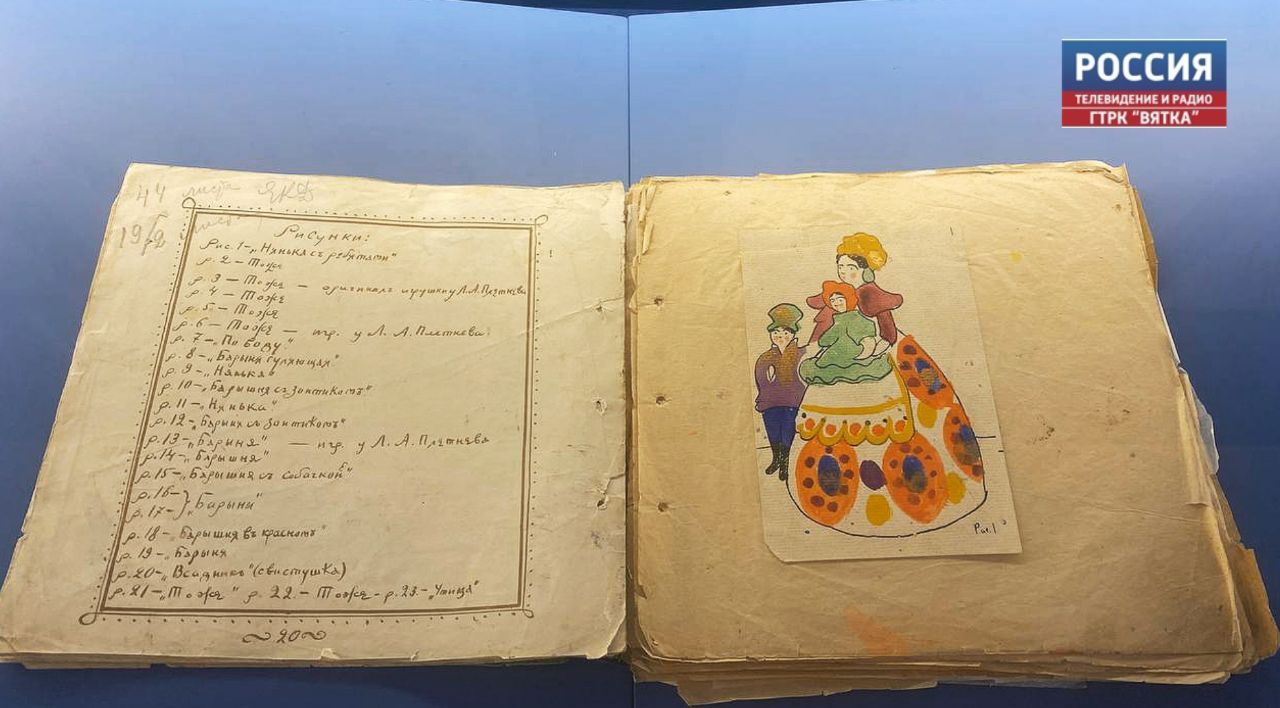 44 листа ЯКД
19
Рисунки:
Рис. 1 – „Нянька съ ребятами"
р. 2 – Тоже
р. 3 – Тоже — оригиналъ игрушки у Л.А.Плетнева
р. 4 – Тоже
р. 5. – Тоже
р. 6 – Тоже — игр. у Л. А. Плетнева.
р. 7 – „По воду"
р. 8 – „Барыня гуляющая"
р. 9 – „Нянька"
р. 10 – „Барышня съ зонтикомъ"
р. 11 – „Нянька"
р. 12 – „Барыня съ зонтикомъ"
р. 13 – „Барыня" — игр. у Л. А. Плетнева
р. 14 – „Барышня"
р. 15 – „Барышня съ собачкой"
р. 16 –
р. 17 – } „Барыни"
р. 18 – „Барышня въ красномъ"
р. 19 – „Барыня
р. 20 – „Всадникъ" (свистушка)
р. 21 – „Тоже" р. 22. – Тоже – р. 23. – „Утица"
~20~
Рис. 1
РОССИЯ
ТЕЛЕВИДЕНИЕ И РАДИО
ГТРК "ВЯТКА"